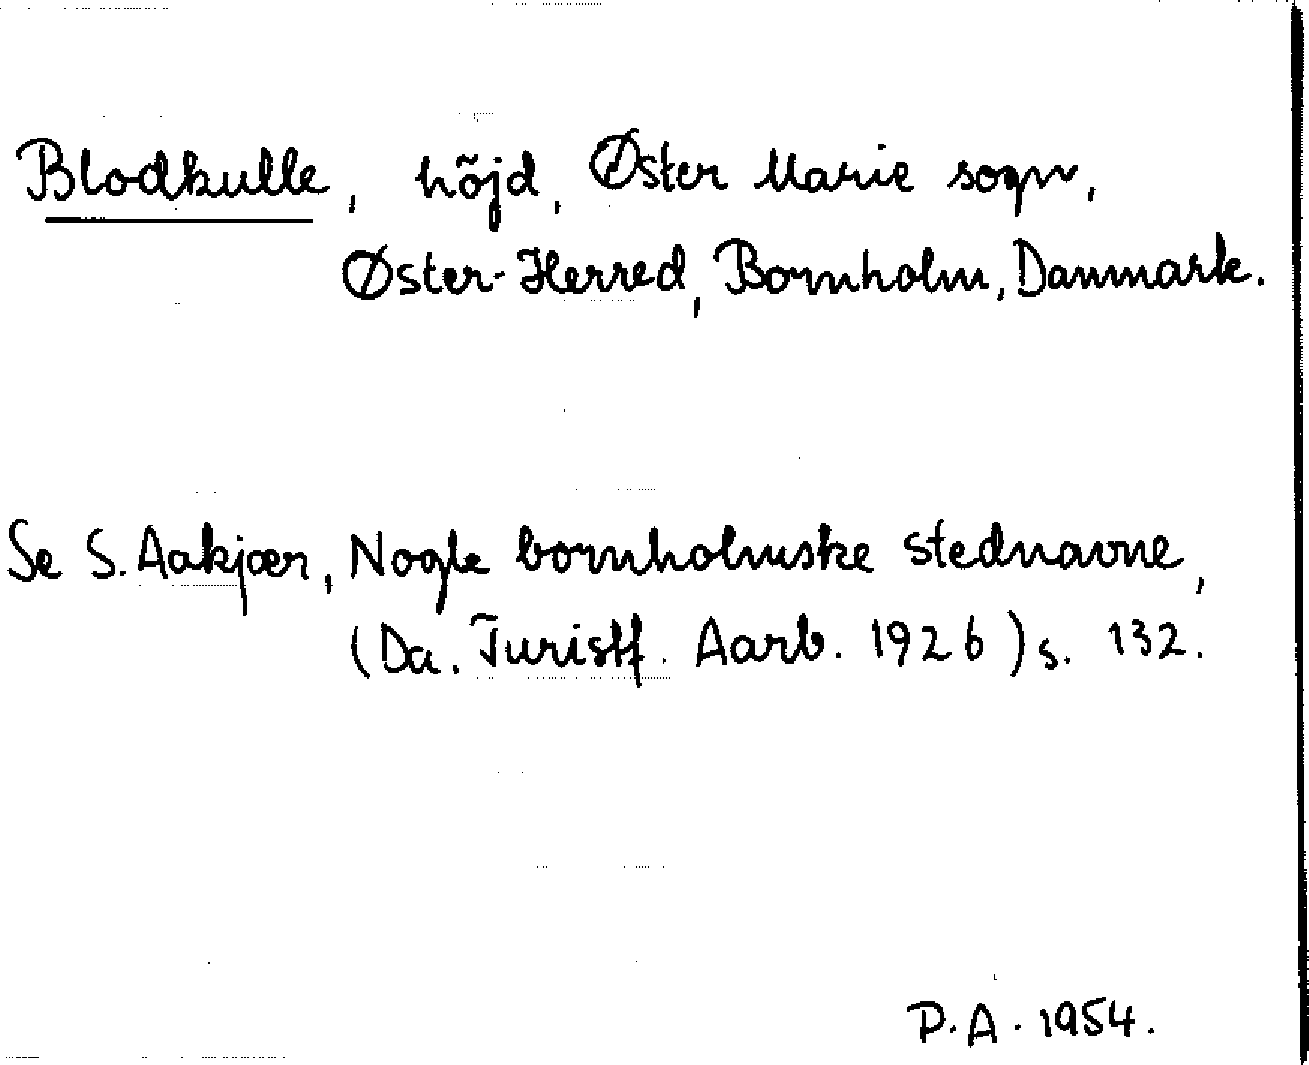 Blodkulle, höjd, Øster Marie sogn,
Øster-Herred, Bornholm, Danmark.
Se S. Aakjær, Nogle bornholmske stednavne,
(Da. Turistf. Aarb. 1926) s. 132.
P.A. 1954.